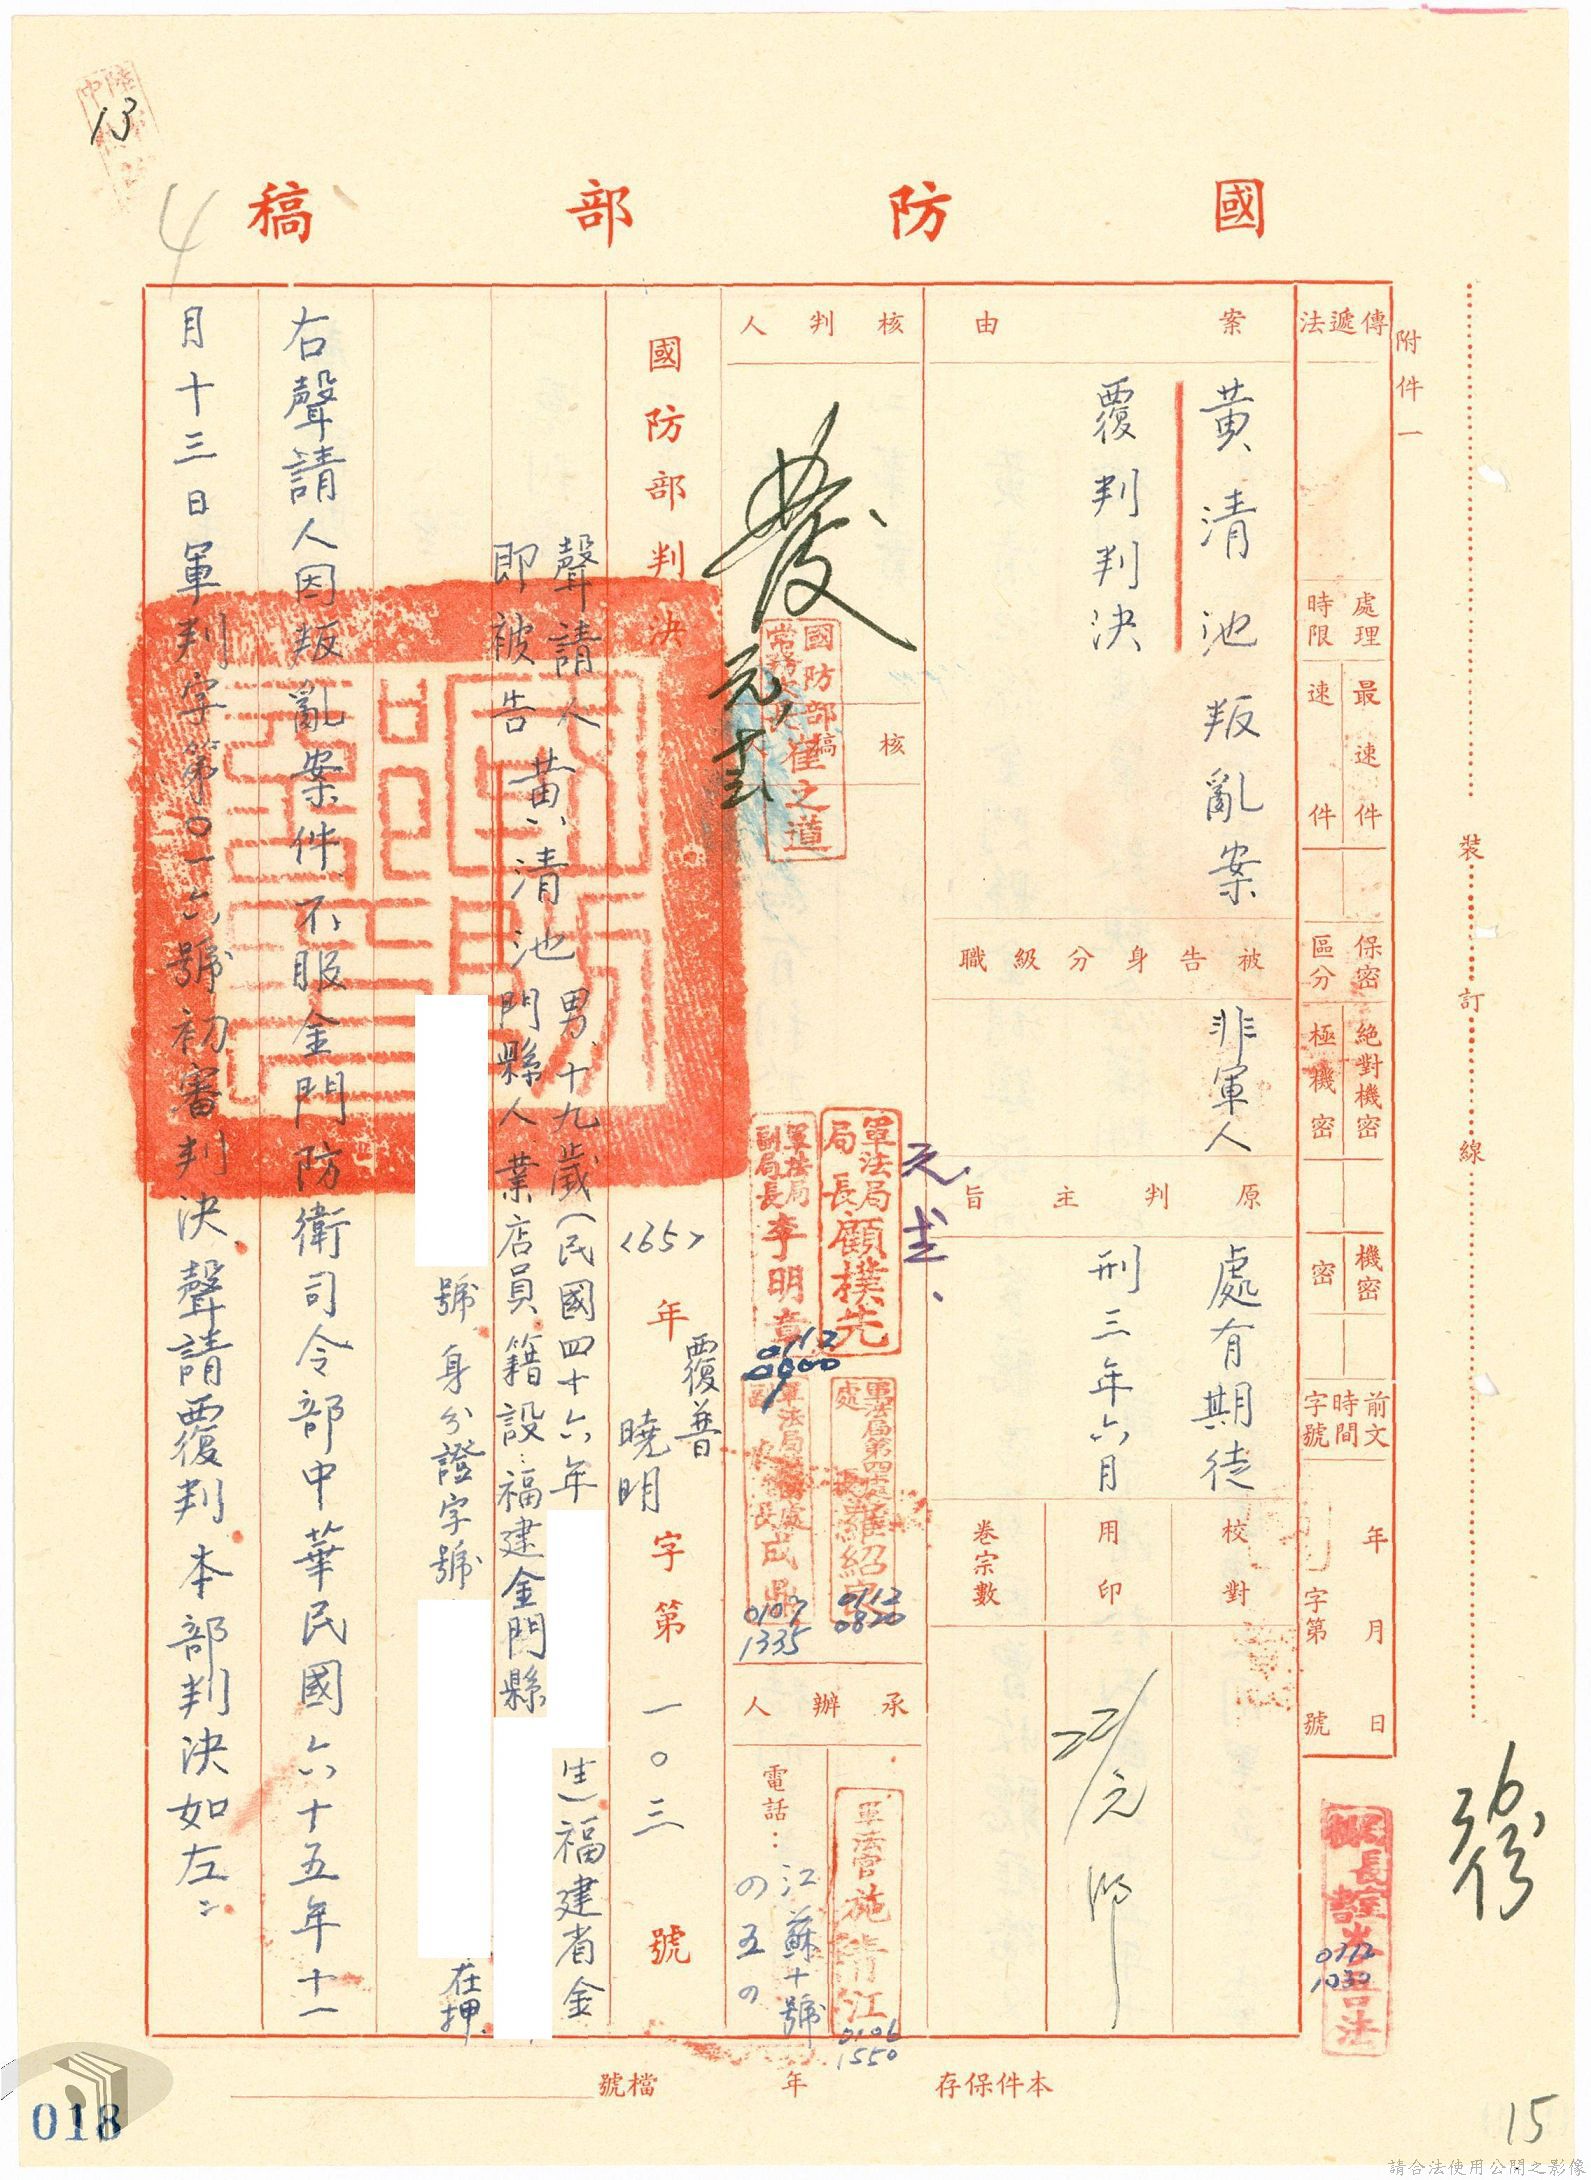 13
4
國防部稿
附件一
裝訂線
傳遞法
處理時限
最速件
速件
保密區分
絕對機密
極機密
機密
密
前文時間字號
年月日
字第號
案由
黃清池叛亂案
覆判判決
被告身分級職
非軍人
原判主旨
處有期徒
刑三年六月
校對
用印
卷宗數
核判人
發
元
國防部
常務次長
崔之道
核稿
軍法局
局長
顧樸先
軍法局
副局長
李明章
0112
0900
0112
0820
0107
1335
承辦人
軍法官施清江
0106
1550
電話：
江蘇十號
國防部判決
〈65〉年
覆普
曉明
字第一〇三號
聲請人
即被告
黃清池
男、十九歲（民國四十六年
生）福建省金
門縣人業店員籍設：福建金門縣
號身分證字號
在押
右聲請人因叛亂案件、不服金門防衛司令部中華民國六十五年十一
月十三日軍判字第〇一六號初審判決聲請覆判本部判決如左：
本件保存
年
檔號
018
15
請合法使用公開之影像